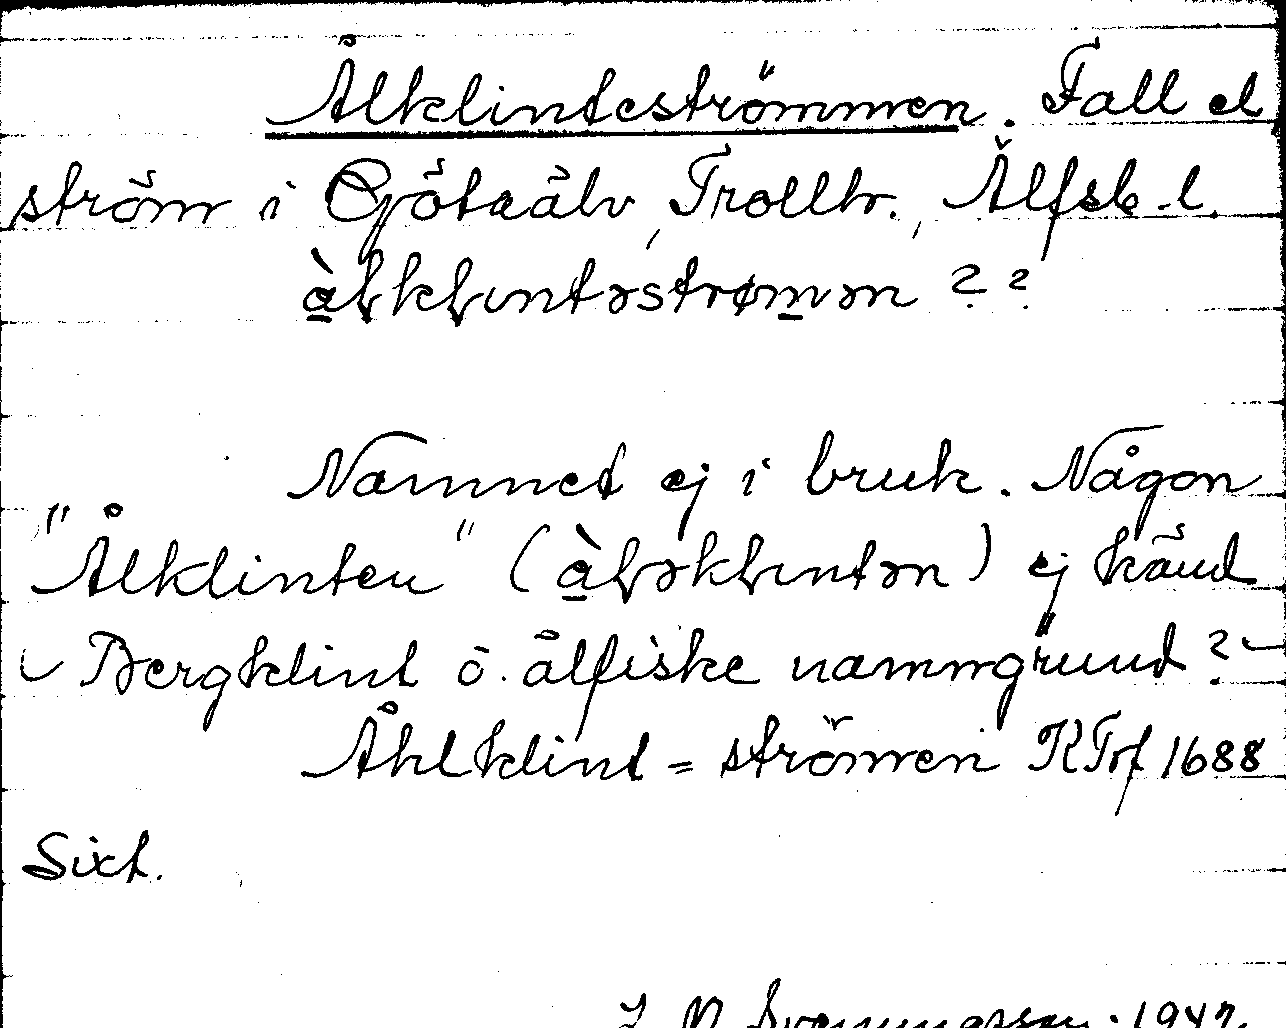 Ålklinteströmmen. Fall el
ström i Götaälv, Trollh., Älfsb. l.
àlklintəstrømən ??
Namnet ej i bruk. Någon
"Ålklinten" (àləklintən) ej känd
Bergklint o. ålfiske namngrund?
Åhlklint=strömen KTrf 1688
Sixt.
Svenningsson. 1947.